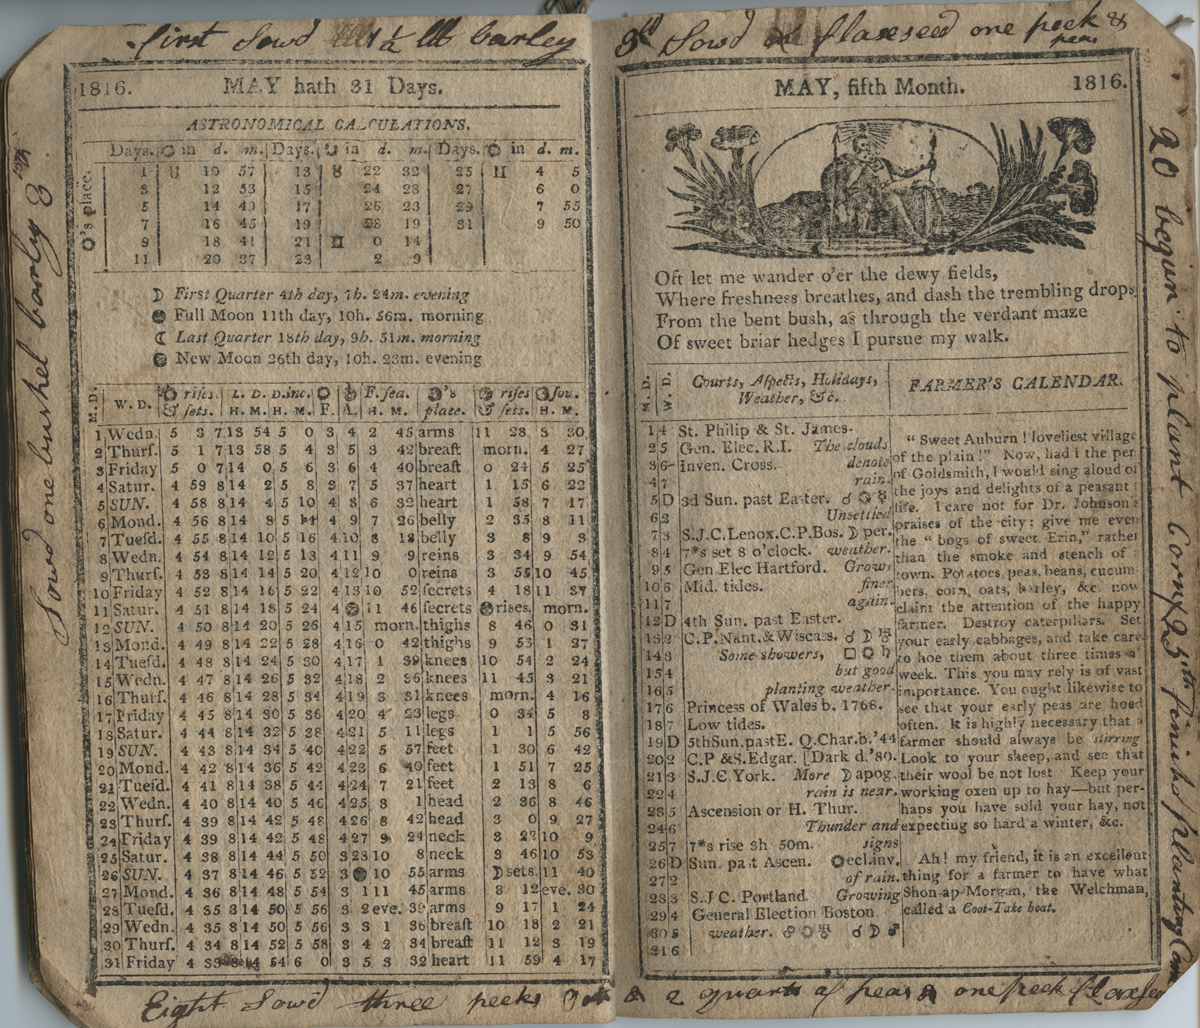 first Sow'd barley
1816. MAY hath 31 Days.
ASTRONOMICAL CALCULATIONS.
Days. in d. m. Days. in d. m. Days. in d. m.
☉'s place.
1 ♉ 10 57 13 ♉ 22 32 25 ♊ 4 5
3 12 53 15 24 28 27 6 0
5 14 49 17 26 23 29 7 55
7 16 45 19 28 19 31 9 50
9 18 41 21 ♊ 0 14
11 20 37 23 2 9
☽ First Quarter 4th day, 7h. 24m. evening
● Full Moon 11th day, 10h. 56m. morning
☾ Last Quarter 18th day, 9h. 51m. morning
● New Moon 26th day, 10h. 23m. evening
M. D. W. D. rises & sets. L. D. H. M. D. inc. H. M. F. A. F. sea. H. M. 's place. rises & sets. sou. H. M.
1 Wedn. 5 3 7 13 54 5 0 3 4 2 45 arms 11 28 3 30
2 Thurs. 5 1 7 13 58 5 4 3 5 3 42 breast morn. 4 27
3 Friday 5 0 7 14 0 5 6 3 6 4 40 breast 0 24 5 25
4 Satur. 4 59 8 14 2 5 8 2 7 5 37 heart 1 15 6 22
5 SUN. 4 58 8 14 4 5 10 4 8 6 32 heart 1 58 7 17
6 Mond. 4 56 8 14 8 5 14 4 9 7 26 belly 2 35 8 11
7 Tuesd. 4 55 8 14 10 5 16 4 10 8 18 belly 3 8 9 3
8 Wedn. 4 54 8 14 12 5 13 4 11 9 9 reins 3 34 9 54
9 Thurs. 4 53 8 14 14 5 20 4 12 10 0 reins 3 55 10 45
10 Friday 4 52 8 14 16 5 22 4 13 10 52 secrets 4 18 11 37
11 Satur. 4 51 8 14 18 5 24 4 ● 11 46 secrets ● rises. morn.
12 SUN. 4 50 8 14 20 5 26 4 15 morn. thighs 8 46 0 31
13 Mond. 4 49 8 14 22 5 28 4 16 0 42 thighs 9 53 1 27
14 Tuesd. 4 48 8 14 24 5 30 4 17 1 39 knees 10 54 2 24
15 Wedn. 4 47 8 14 26 5 32 4 18 2 36 knees 11 45 3 21
16 Thurs. 4 46 8 14 28 5 34 4 19 3 31 knees morn. 4 16
17 Friday 4 45 8 14 30 5 36 4 20 4 23 legs 0 34 5 8
18 Satur. 4 44 8 14 32 5 38 4 21 5 11 legs 1 1 5 56
19 SUN. 4 43 8 14 34 5 40 4 22 5 57 feet 1 30 6 42
20 Mond. 4 42 8 14 36 5 42 4 23 6 40 feet 1 51 7 25
21 Tuesd. 4 41 8 14 38 5 44 4 24 7 21 feet 2 13 8 6
22 Wedn. 4 40 8 14 40 5 46 4 25 8 1 head 2 36 8 46
23 Thurs. 4 39 8 14 42 5 48 4 26 8 42 head 3 0 9 27
24 Friday 4 39 8 14 42 5 48 4 27 9 24 neck 3 22 10 9
25 Satur. 4 38 8 14 44 5 50 3 23 10 8 neck 3 46 10 53
26 SUN. 4 37 8 14 46 5 52 3 ● 10 55 arms ☽ sets. 11 40
27 Mond. 4 36 8 14 48 5 54 3 1 11 45 arms 8 12 eve. 30
28 Tuesd. 4 35 8 14 50 5 56 3 2 eve. 39 arms 9 17 1 24
29 Wedn. 4 35 8 14 50 5 56 3 3 1 36 breast 10 18 2 21
30 Thurs. 4 34 8 14 52 5 58 3 4 2 34 breast 11 12 3 19
31 Friday 4 33 8 14 54 6 0 3 5 3 32 heart 11 59 4 17
Sow'd one bushel barley 8
Eight Sow'd three pecks
Sow'd flaxseed one peck &
peas
MAY, fifth Month. 1816.
Oft let me wander o'er the dewy fields,
Where freshness breathes, and dash the trembling drops
From the bent bush, as through the verdant maze
Of sweet briar hedges I pursue my walk.
M. D. W. D. Courts, Aspects, Holidays, Weather, &c.
1 4 St. Philip & St. James.
2 5 Gen. Elec. R.I. The clouds
3 6 Inven. Cross. denote
4 7 rain.
5 D 3d Sun. past Easter. ☌ ☉ ♅
6 2 Unsettled
7 3 S.J.C. Lenox. C.P. Bos. ☽ per.
8 4 7*s set 8 o'clock. weather.
9 5 Gen Elec Hartford. Grows
10 6 Mid. tides. finer
11 7 again.
12 D 4th Sun. past Easter.
13 2 C.P. Nant. & Wiscass. ☌ ☽ ♅
14 3 Some showers, □ ☉ ♄
15 4 but good
16 5 planting weather.
17 6 Princess of Wales b. 1768.
18 7 Low tides.
19 D 5th Sun. past E. Q. Char. b. '44
20 2 C.P & S. Edgar. [Dark d. '80.
21 3 S.J.C York. More ☽ apog.
22 4 rain is near.
23 5 Ascension or H. Thur.
24 6 Thunder and
25 7 7*s rise 3h 50m. signs
26 D Sun. past Ascen. ☉ ecl. inv.
27 2 of rain.
28 3 S.J C. Portland. Growing
29 4 General Election Boston.
30 5 weather. ☍ ☉ ♅ ☌ ☽ ♂
31 6
FARMER'S CALENDAR.
" Sweet Auburn ! loveliest village
of the plain !" Now, had I the pen
of Goldsmith, I would sing aloud of
the joys and delights of a peasant's
life. I care not for Dr. Johnson's
praises of the city ; give me even
the " bogs of sweet Erin," rather
than the smoke and stench of a
town. Potatoes, peas, beans, cucum-
bers, corn, oats, barley, &c. now
claim the attention of the happy
farmer. Destroy caterpillars. Set
your early cabbages, and take care
to hoe them about three times a
week. This you may rely is of vast
importance. You ought likewise to
see that your early peas are hoed
often. It is highly necessary that a
farmer should always be stirring
Look to your sheep, and see that
their wool be not lost Keep your
working oxen up to hay—but per-
haps you have sold your hay, not
expecting so hard a winter, &c.
Ah! my friend, it is an excellent
thing for a farmer to have what
Shon-ap-Morgan, the Welchman,
called a Coot-Take heat.
20 begun to plant Corn & 25th Finish'd planting Corn
& 2 quarts of peas & one peck flaxseed